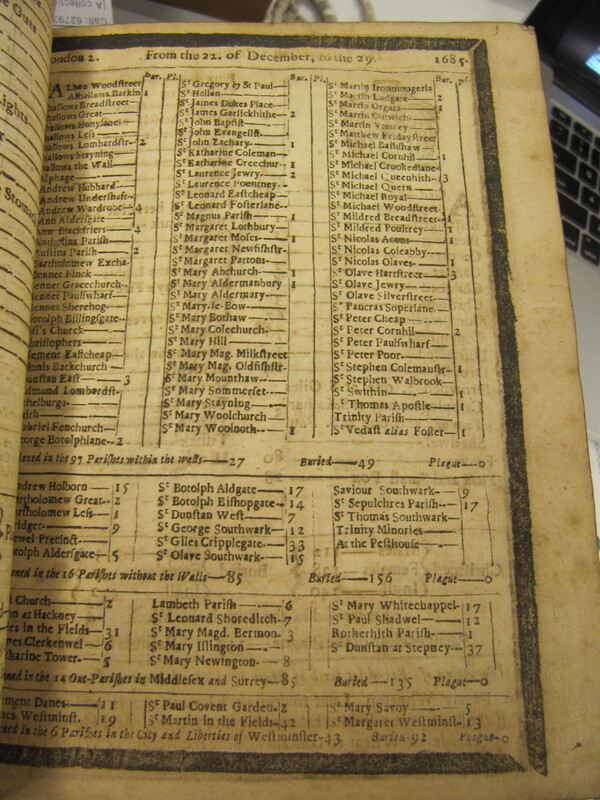 ondon 2. From the 22. of December, to the 29. 1685.
Bur. Pl.
ALban Woodstreet
Alhallows Barkin 1
hallows Breadstreet
hallows Great
hallows Honylane
hallows Less
hallows Lombardstr- 2
hallows Stayning
hallows the Wall
lphage
Andrew Hubbard
Andrew Undershaft
Andrew Wardrobe 4
Ann Aldersgate
Ann Blackfriers 4
Botholins Parish
Austins Parish 2
artholomew Excha.
Bennet Finck
Bennet Gracechurch
Bennet Paulswharf
Bennet Sherehog
Botolph Billingsgate
st's Church
hristophers
lement Eastcheap
ionis Backchurch
unstan East 3
dmund Lombardst.
helburga
aith
abriel Fenchurch
eorge Botolphlane 2
Bur. Pl.
St Gregory by St Paul
St Hellen
St James Dukes Place
St James Garlickhithe 2
St John Baptist
St John Evangelist
St John Zachary 1
St Katharine Coleman
St Katharine Creechur 1
St Laurence Jewry 2
St Laurence Pountney
St Leonard Eastcheap
St Leonard Fosterlane
St Magnus Parish 1
St Margaret Lothbury
St Margaret Moses 1
St Margaret Newfishstr
St Margaret Pattons
St Mary Abchurch 1
St Mary Aldermanbury 1
St Mary Aldermary
St Mary-le-Bow
St Mary Bothaw
St Mary Colechurch
St Mary Hill
St Mary Mag. Milkstreet
St Mary Mag. Oldfishstr
St Mary Mounthaw
St Mary Sommerset
St Mary Stayning
St Mary Woolchurch
St Mary Woolnoth 1
Bur. Pl.
St Martin Ironmongerla
St Martin Ludgate 2
St Martin Orgars 1
St Martin Outwich
St Martin Vintrey
St Matthew Fridaystreet
St Michael Bassishaw
St Michael Cornhil 1
St Michael Crookedlane
St Michael Queenhith 3
St Michael Quern
St Michael Royal
St Michael Woodstreet
St Mildred Breadstreet 1
St Mildred Poultrey 1
St Nicolas Acons 1
St Nicolas Coleabby
St Nicolas Olaves 1
St Olave Hartstreet 3
St Olave Jewry
St Olave Silverstreet
St Pancras Soperlane
St Peter Cheap
St Peter Cornhil 2
St Peter Paulswharf
St Peter Poor
St Stephen Colemanstr 1
St Stephen Walbrook
St Swithin 1
St Thomas Apostle 1
Trinity Parish
St Vedast alias Foster 1
in the 97 Parishes within the Walls 27 Buried 49 Plague 0
ndrew Holborn 15
rtholomew Great 2
rtholomew Less 1
ridget 9
ewel Precinct
otolph Aldersgate 5
St Botolph Aldgate 17
St Botolph Bishopgate 14
St Dunstan West 7
St George Southwark 12
St Giles Cripplegate 33
St Olave Southwark 15
Saviour Southwark 9
St Sepulchres Parish 17
St Thomas Southwark
Trinity Minories
At the Pesthouse
ened in the 16 Parishes without the Walls 85 Buried 156 Plague 0
Church 2
n at Hackney
es in the Fields 31
nes Clerkenwel 6
tharine Tower 5
Lambeth Parish 6
St Leonard Shoreditch 7
St Mary Magd. Bermon. 3
St Mary Islington
St Mary Newington 8
St Mary Whitechappel 17
St Paul Shadwel 12
Rotherhith Parish 1
St Dunstan at Stepney 37
ned in the 14 Out-Parishes in Middlesex and Surrey 85 Buried 135 Plague 0
ment Danes 11
nes Westminst. 19
St Paul Covent Garden 2
St Martin in the Fields 42
St Mary Savoy 5
St Margaret Westminst. 13
ned in the 6 Parishes in the City and Liberties of Westminster 43 Buried 92 Plague 0